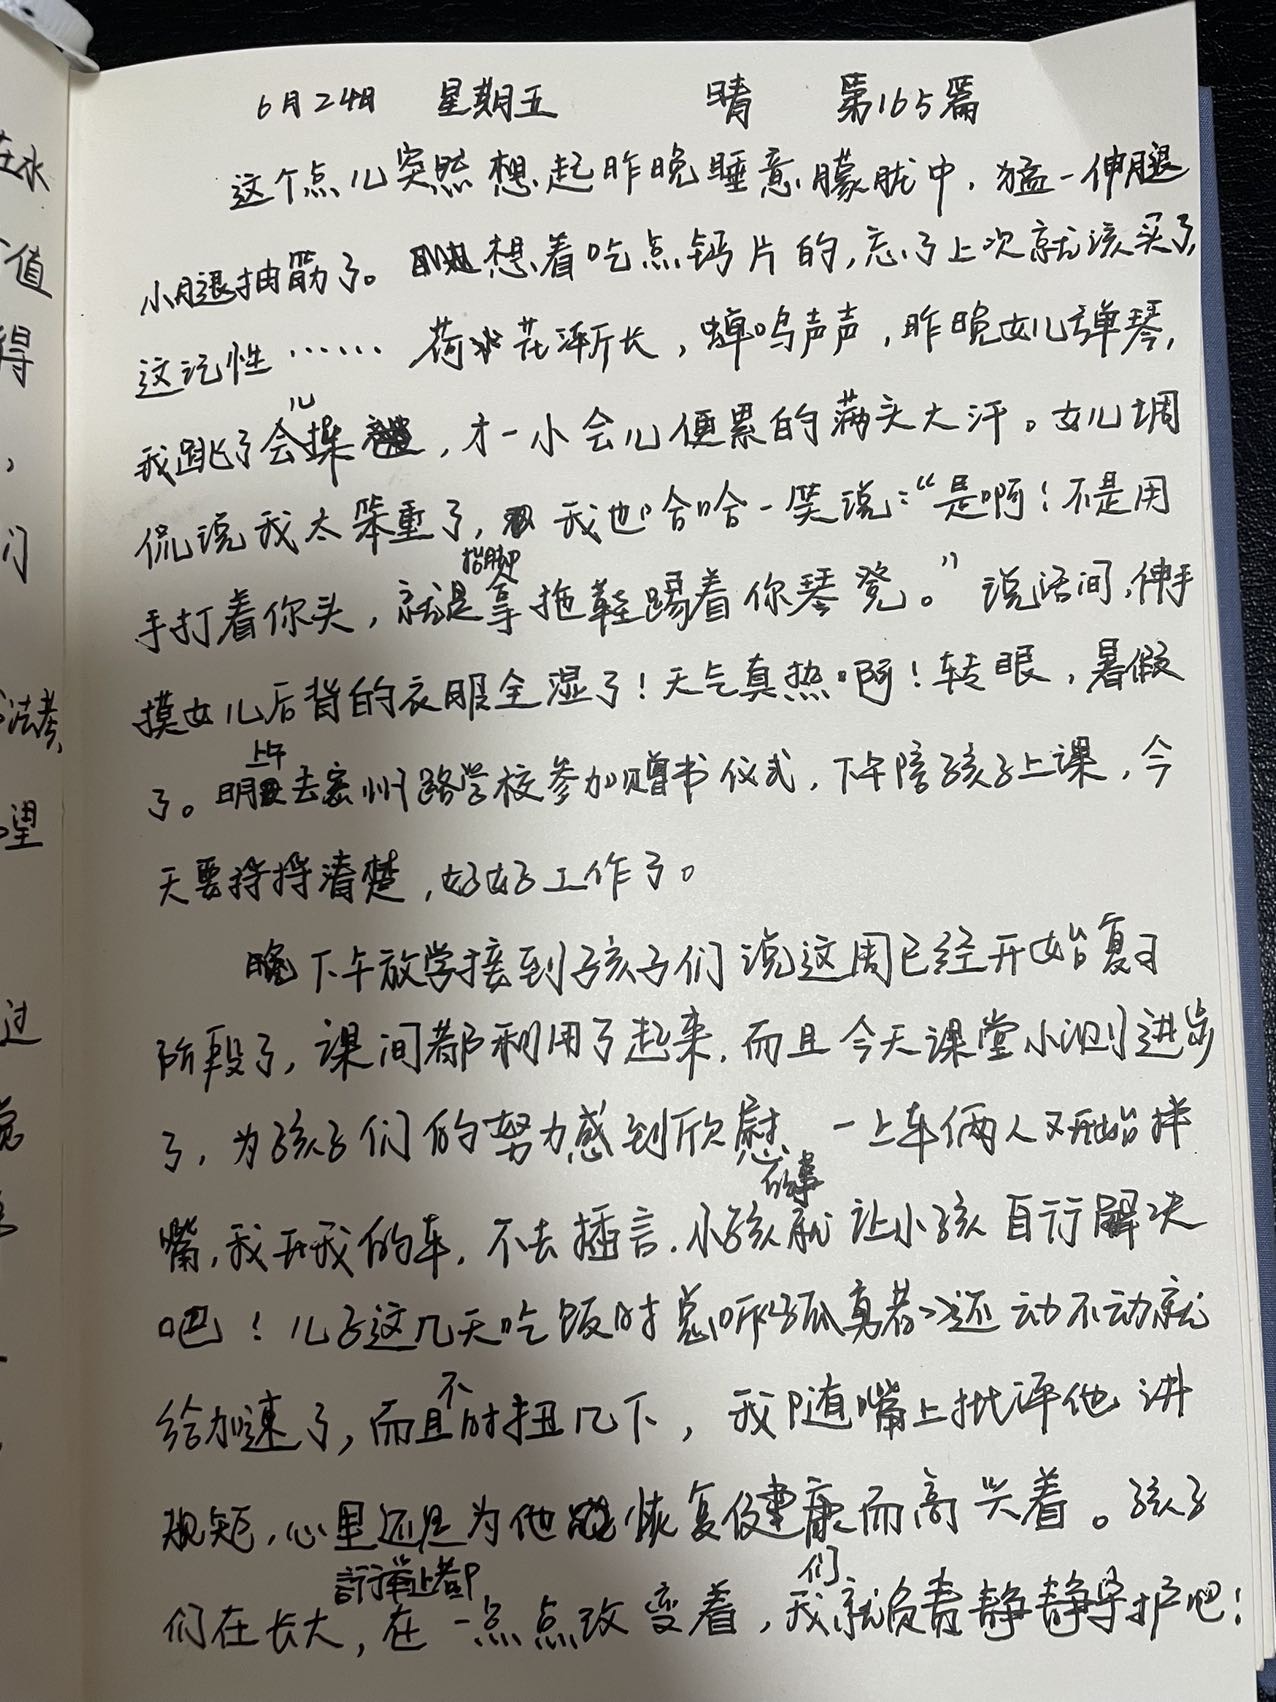 6月24日 星期五 晴 第165篇
这个点儿突然想起昨晚睡意朦胧中,猛一伸腿
小腿抽筋了。想着吃点钙片的,忘了上次就该买了,
这记性…… 荷花渐长,蝉鸣声声,昨晚女儿弹琴,
我跳了会儿操,才一小会儿便累的满头大汗。女儿调
侃说我太笨重了,我也哈哈一笑说:“是啊!不是用
手打着你头,就是抬脚拿拖鞋踢着你琴凳。”说话间,伸手
摸女儿后背的衣服全湿了!天气真热啊!转眼,暑假
了。明上午去密州路学校参加赠书仪式,下午陪孩子上课,今
天要捋捋清楚,好好工作了。
下午放学接到孩子们说这周已经开始复习
阶段了,课间都利用了起来,而且今天课堂小测进步
了,为孩子们的努力感到欣慰、一上车俩人又开始拌
嘴,我开我的车,不去插言,小孩的事就让小孩自行解决
吧!儿子这几天吃饭时总听《孤勇者》还动不动就
给加速了,而且不时扭几下,我随嘴上批评他讲
规矩,心里还是为他恢复健康而高兴着。孩子
们在长大,言行举止都在一点点改变着,我们就负责静静守护吧!
在水
值
得
们
法考,
望
过
觉